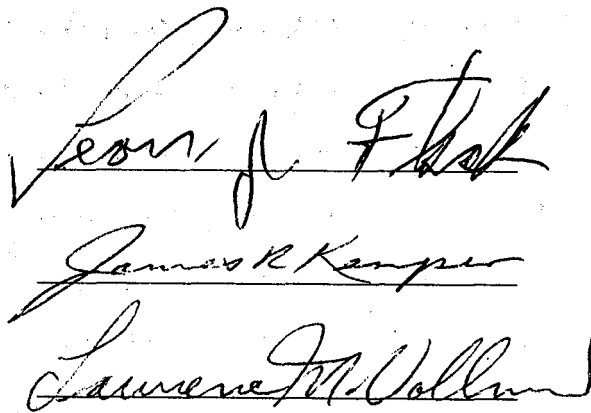 Leon J.
James R Kemper
Laurence M. Vollmer